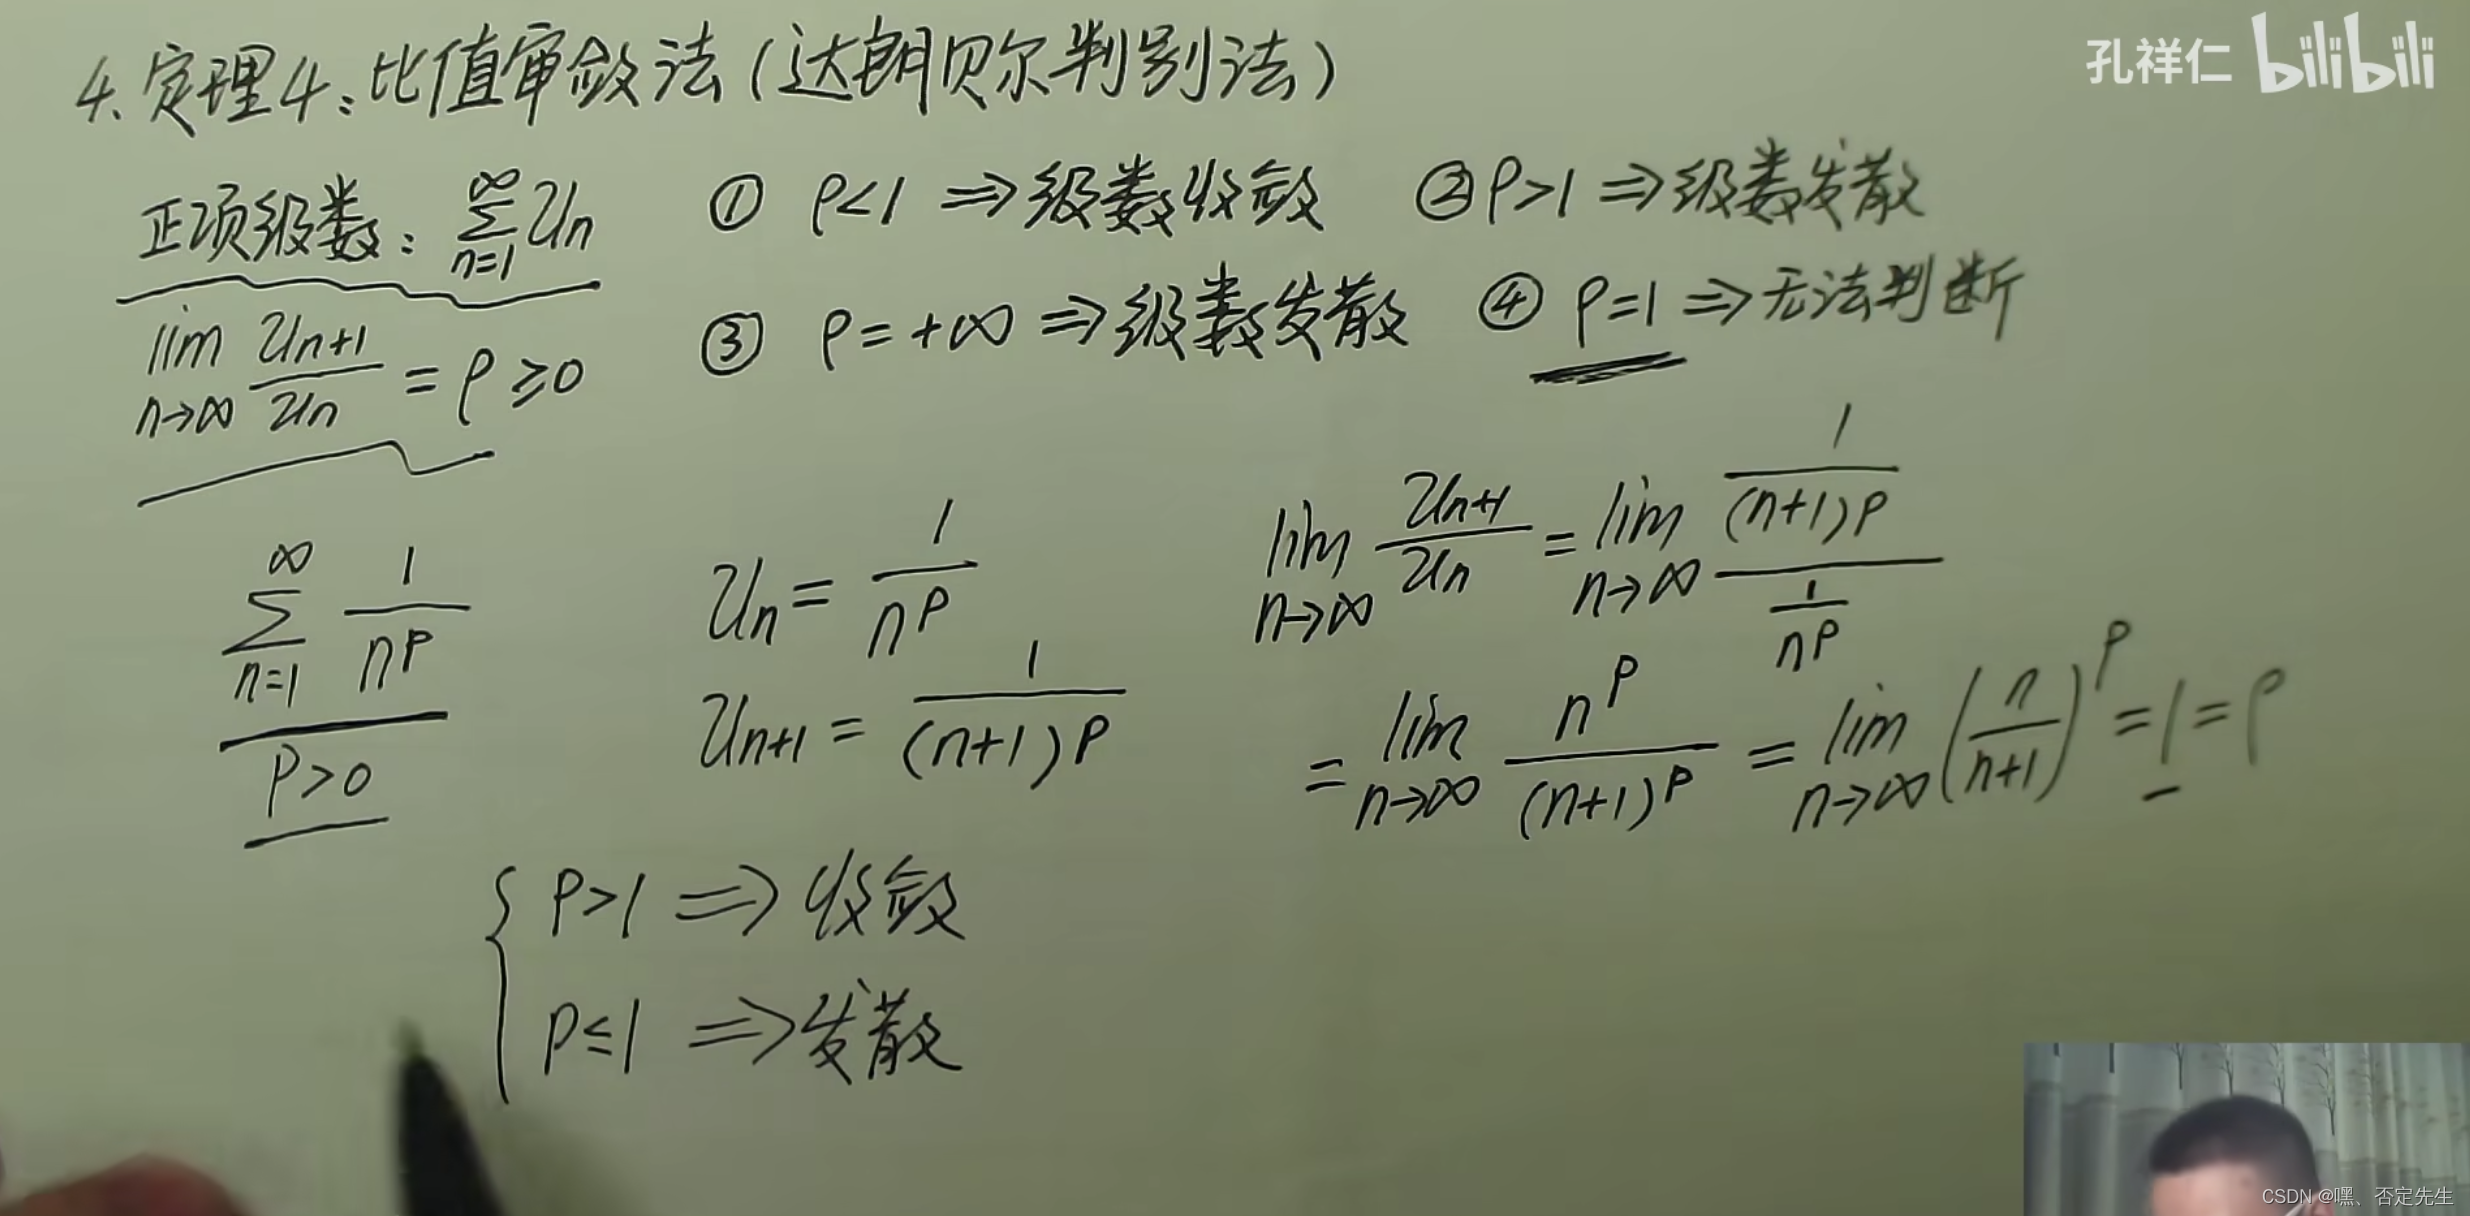 4. 定理4: 比值审敛法(达朗贝尔判别法)
孔祥仁 bilibili
正项级数: \sum_{n=1}^{\infty} u_n
① ρ<1 ⇒ 级数收敛 ② ρ>1 ⇒ 级数发散
③ ρ=+∞ ⇒ 级数发散 ④ ρ=1 ⇒ 无法判断
\lim_{n→∞} \frac{u_{n+1}}{u_n} = ρ ≥ 0
\sum_{n=1}^{∞} \frac{1}{n^p}
p>0
u_n = \frac{1}{n^p}
u_{n+1} = \frac{1}{(n+1)^p}
\lim_{n→∞} \frac{u_{n+1}}{u_n} = \lim_{n→∞} \frac{\frac{1}{(n+1)^p}}{\frac{1}{n^p}}
= \lim_{n→∞} \frac{n^p}{(n+1)^p} = \lim_{n→∞} (\frac{n}{n+1})^p = 1 = ρ
{ p>1 ⇒ 收敛
p≤1 ⇒ 发散
CSDN @嘿、否定先生